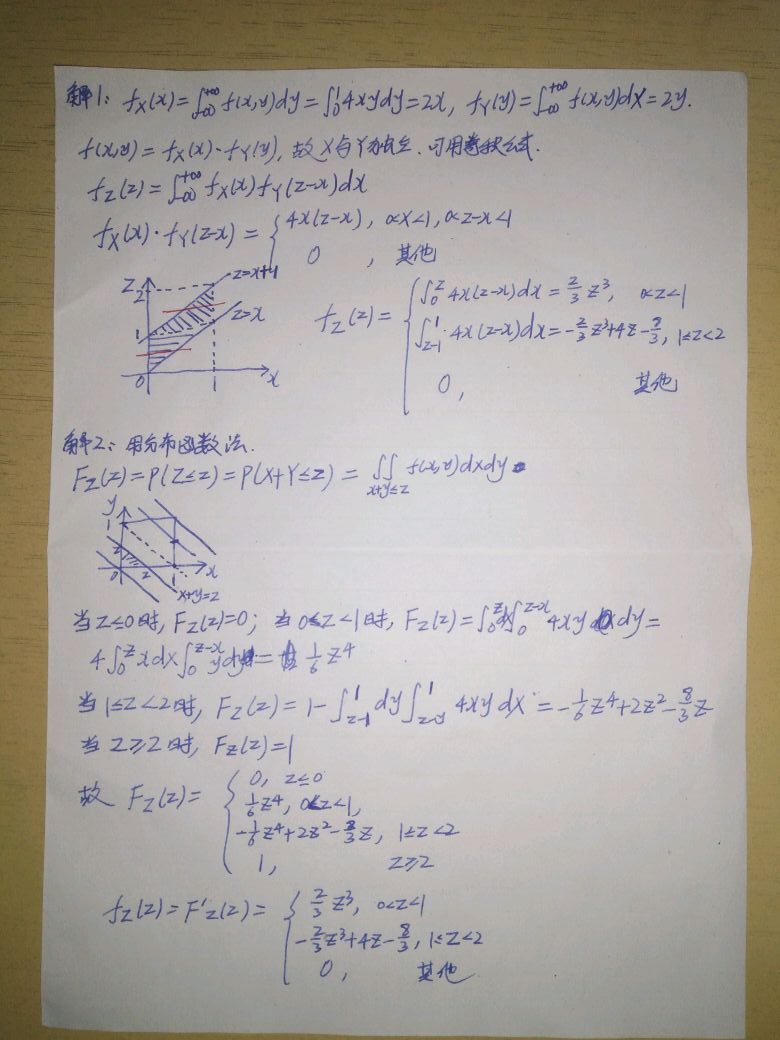 解1: f_X(x)=∫_{-∞}^{+∞} f(x,y)dy=∫_0^1 4xydy=2x, f_Y(y)=∫_{-∞}^{+∞} f(x,y)dx=2y.
f(x,y)=f_X(x)·f_Y(y), 故X与Y独立. 可用卷积公式.
f_Z(z)=∫_{-∞}^{+∞} f_X(x)f_Y(z-x)dx
f_X(x)·f_Y(z-x)= { 4x(z-x), 0<x<1, 0<z-x<1
0, 其他
z
2
z=x+1
z=x
1
0
1
x
f_Z(z)= { ∫_0^z 4x(z-x)dx=2/3 z^3, 0<z<1
∫_{z-1}^1 4x(z-x)dx=-2/3 z^3+4z-8/3, 1≤z<2
0, 其他
解2: 用分布函数法.
F_Z(z)=P(Z≤z)=P(X+Y≤z)=∬_{x+y≤z} f(x,y)dxdy
y
1
z
0
z
1
x
x+y=z
当z≤0时, F_Z(z)=0; 当0≤z<1时, F_Z(z)=∫_0^z dx∫_0^{z-x} 4xy dy=
4∫_0^z xdx∫_0^{z-x} ydy=1/6 z^4
当1≤z<2时, F_Z(z)=1-∫_{z-1}^1 dy∫_{z-y}^1 4xydx=-1/6 z^4+2z^2-8/3 z
当z≥2时, F_Z(z)=1
故 F_Z(z)= { 0, z≤0
1/6 z^4, 0<z<1,
-1/6 z^4+2z^2-8/3 z, 1≤z<2
1, z≥2
f_Z(z)=F'_Z(z)= { 2/3 z^3, 0<z<1
-2/3 z^3+4z-8/3, 1≤z<2
0, 其他